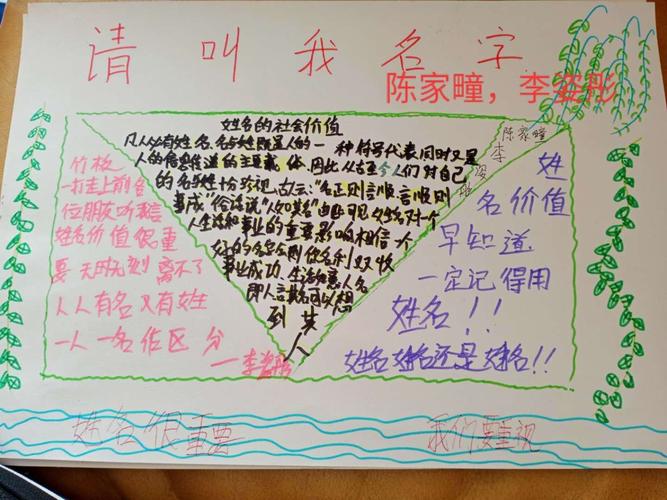 请叫我名字
陈家曈，李姿彤
姓名的社会价值
凡人必有姓名,名与姓既是人的一种符号代表同时又是
人的信息传递的主要载体,因此从古至今人们对自己
的名与姓十分珍视,古云:"名正则言顺言顺则
事成"俗话说"人如其名"由此可见姓名对一个
人生活和事业的重要影响相信一个
好的名字则你名利双收
事业成功、生活如意人名
即人言其名可以想
到其
人
竹板
一打走上前各
位朋友听我言
姓名价值很重
要天时无刻离不了
人人有名又有姓
一人一名作区分
一李姿彤
陈家曈
李姿彤
姓
名价值
早知道
一定记得用
姓名!!
姓名姓名还是姓名!!
姓名很重要
我们要重视